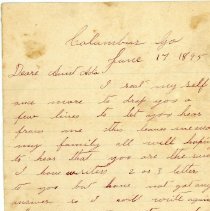 Columbus Ga
June 17 1895
Deare Aunt Ada
I seat my self
one more to drop you a
few lines to let you hear
from me this leaves me and
my family all well hopeing
to hear that you are the same
I have writen 2 or 3 letter
to you but have not got any
answer so I will write again